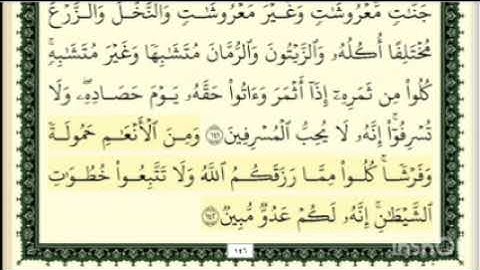 جَنَّٰتٍ مَّعْرُوشَٰتٍ وَغَيْرَ مَعْرُوشَٰتٍ وَٱلنَّخْلَ وَٱلزَّرْعَ
مُخْتَلِفًا أُكُلُهُۥ وَٱلزَّيْتُونَ وَٱلرُّمَّانَ مُتَشَٰبِهًا وَغَيْرَ مُتَشَٰبِهٍۚ
كُلُوا۟ مِن ثَمَرِهِۦٓ إِذَآ أَثْمَرَ وَءَاتُوا۟ حَقَّهُۥ يَوْمَ حَصَادِهِۦۖ وَلَا
تُسْرِفُوٓا۟ۚ إِنَّهُۥ لَا يُحِبُّ ٱلْمُسْرِفِينَ ١٤١ وَمِنَ ٱلْأَنْعَٰمِ حَمُولَةً
وَفَرْشًاۚ كُلُوا۟ مِمَّا رَزَقَكُمُ ٱللَّهُ وَلَا تَتَّبِعُوا۟ خُطُوَٰتِ
ٱلشَّيْطَٰنِۚ إِنَّهُۥ لَكُمْ عَدُوٌّ مُّبِينٌ ١٤٢
١٤٦